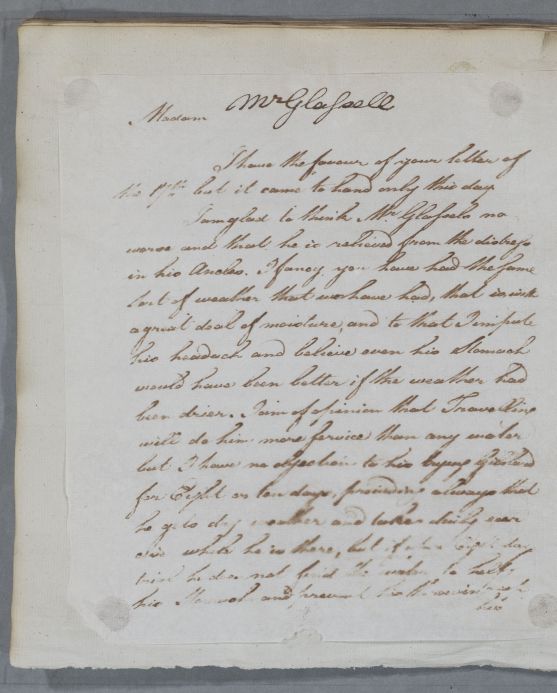 Mr Glassell
Madam
I have the favour of your letter of
the 17th but it came to hand only this day
I am glad to think Mr Glassels no
worse and that he is relieved from the distress
in his Ancles. I fancy you have had the same
sort of weather that we have had, that is with
a great deal of moisture, and to that I impute
his headach and believe even his Stomach
would have been better if the weather had
been drier. I am of opinion that Travelling
will do him more service than any water
but I have no objection to his trying
for Eight or ten days, providing always that
he gets dry weather and takes daily exer
cise while he is there, but if
he does not find the water to help
his Stomach and prevent
his